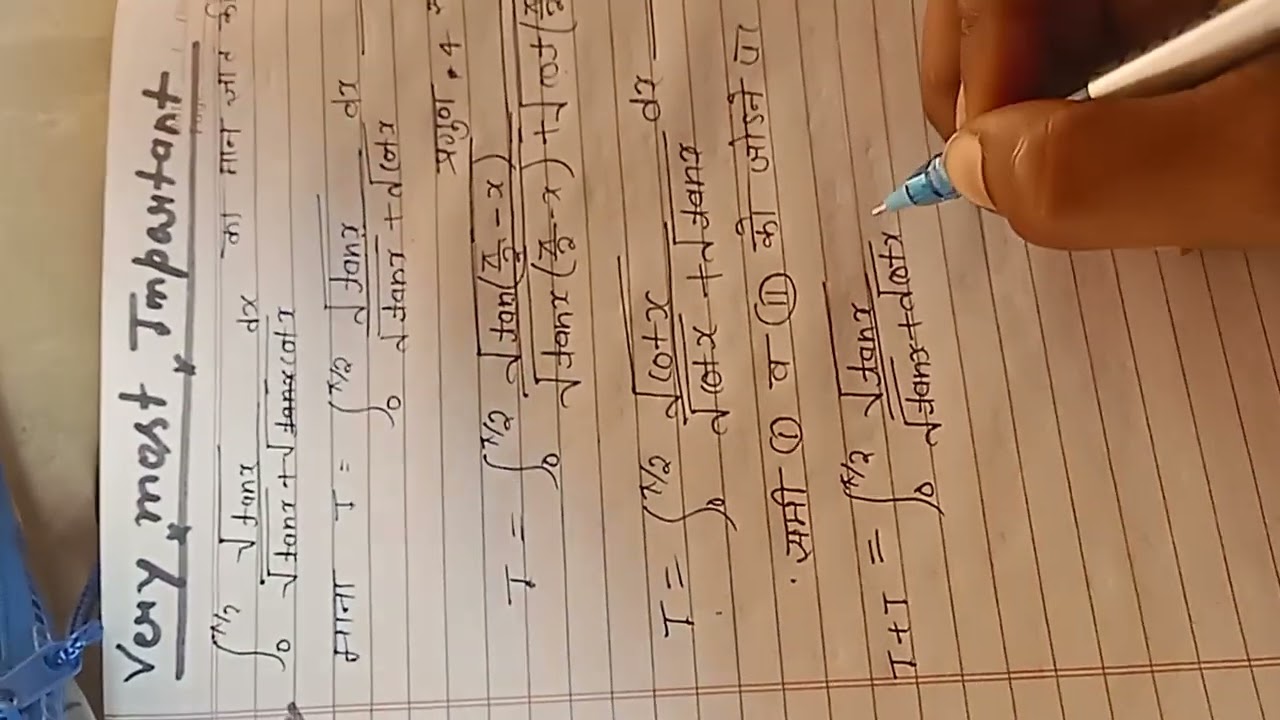 Very most Impartant
∫₀^π/2 √tanx / √tanx + √cotx dx का मान ज्ञात
माना I = ∫₀^π/2 √tanx / √tanx + √cotx dx
प्रगुण .4
I = ∫₀^π/2 √tan(π/2 - x) / √tanx(π/2 - x) + √cot(
I = ∫₀^π/2 √cotx / √cotx + √tanx dx
समी ① व ② को जोडने पर
I + I = ∫₀^π/2 √tanx / √tanx + √cotx